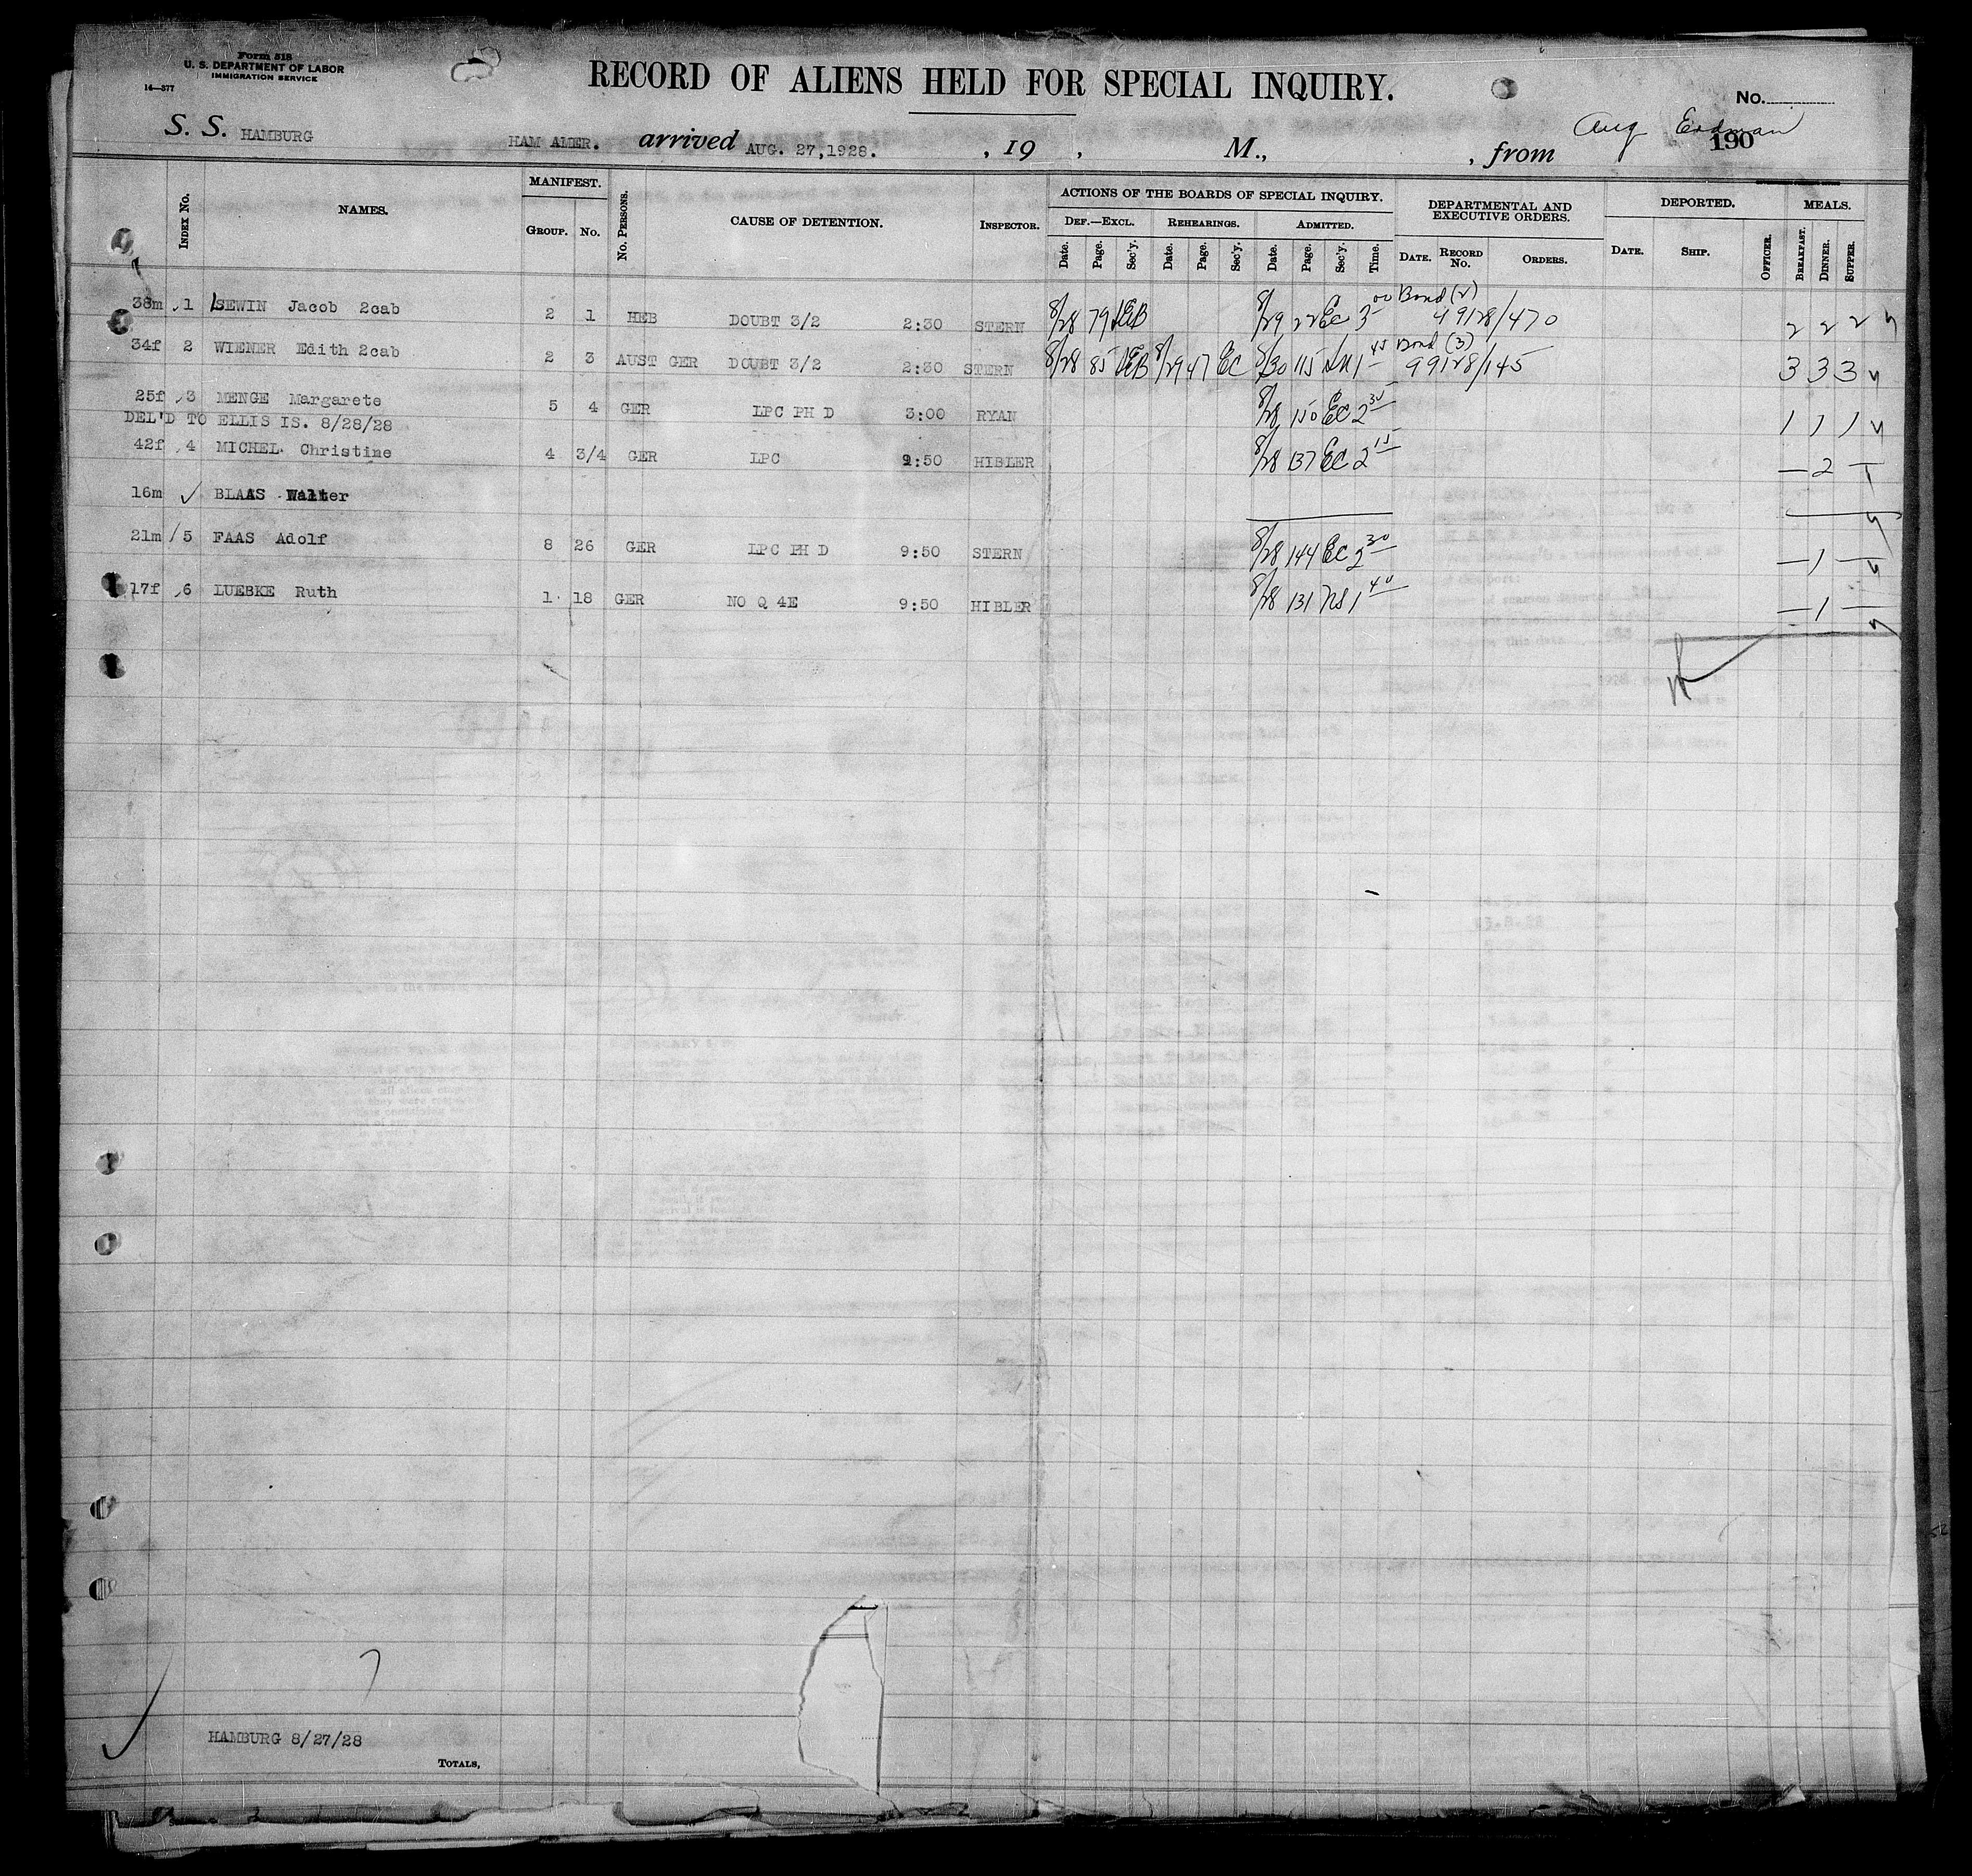 Form 518
U. S. DEPARTMENT OF LABOR
IMMIGRATION SERVICE
14—377
RECORD OF ALIENS HELD FOR SPECIAL INQUIRY.
No.
S. S. HAMBURG HAM AMER. arrived AUG. 27, 1928. , 19 , M., , from Aug Erdman 190
INDEX No. NAMES. MANIFEST. GROUP. No. No. PERSONS. CAUSE OF DETENTION. INSPECTOR. ACTIONS OF THE BOARDS OF SPECIAL INQUIRY. DEPARTMENTAL AND EXECUTIVE ORDERS. DEPORTED. MEALS.
DEF.—EXCL. REHEARINGS. ADMITTED.
Date. Page. Sec'y. Date. Page. Sec'y. Date. Page. Sec'y. Time. DATE. RECORD No. ORDERS. DATE. SHIP. OFFICER. BREAKFAST. DINNER. SUPPER.
38m 1 SEWIN Jacob 2cab 2 1 HEB DOUBT 3/2 2:30 STERN 8/28 79 8/29 22 EC 3 00 Bond (2) 49128/470 2 2 2
34f 2 WIENER Edith 2cab 2 3 AUST GER DOUBT 3/2 2:30 STERN 8/28 85 8/29 47 EC 8/30 115 1 45 Bond (3) 99128/145 3 3 3
25f 3 MENGE Margarete 5 4 GER LPC PH D 3:00 RYAN 8/28 150 EC 2 30 1 1 1
DEL'D TO ELLIS IS. 8/28/28
42f 4 MICHEL Christine 4 3/4 GER LPC 9:50 HIBLER 8/28 137 EC 2 15 — 2 —
16m BLAAS Walter
21m 5 FAAS Adolf 8 26 GER LPC PH D 9:50 STERN 8/28 144 EC 2 30 — 1 —
17f 6 LUEBKE Ruth 1 18 GER NO Q 4E 9:50 HIBLER 8/28 131 NS 1 40 — 1 —
HAMBURG 8/27/28
TOTALS,